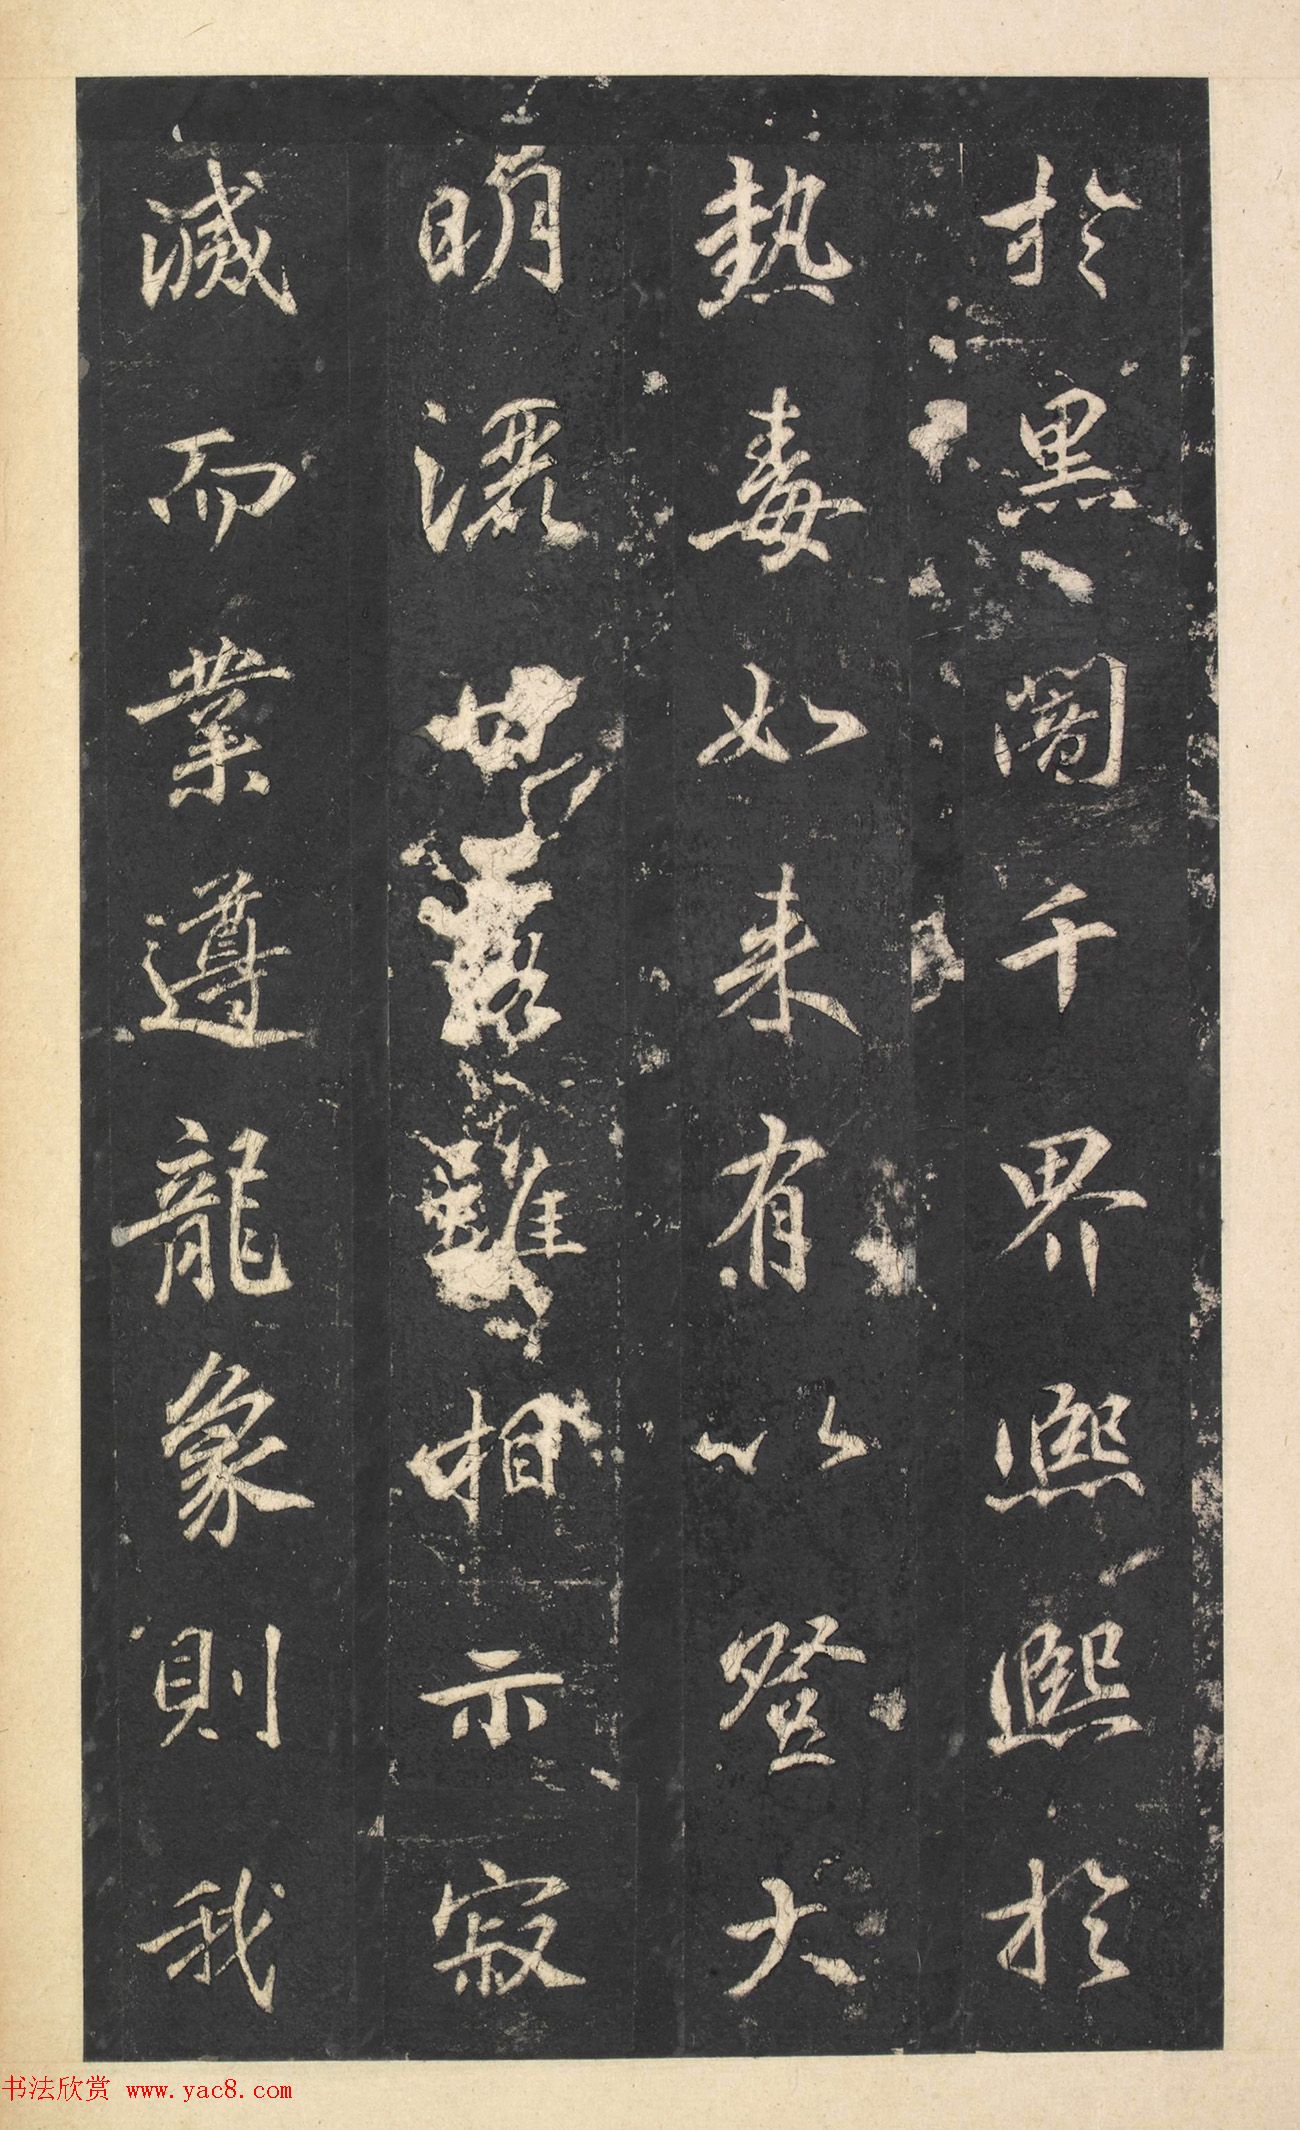 於黑闇千界熙熙於
熱毒如来有以登大
明灑甘露雖相示寂
滅而業遵龍象則我
书法欣赏 www.yac8.com